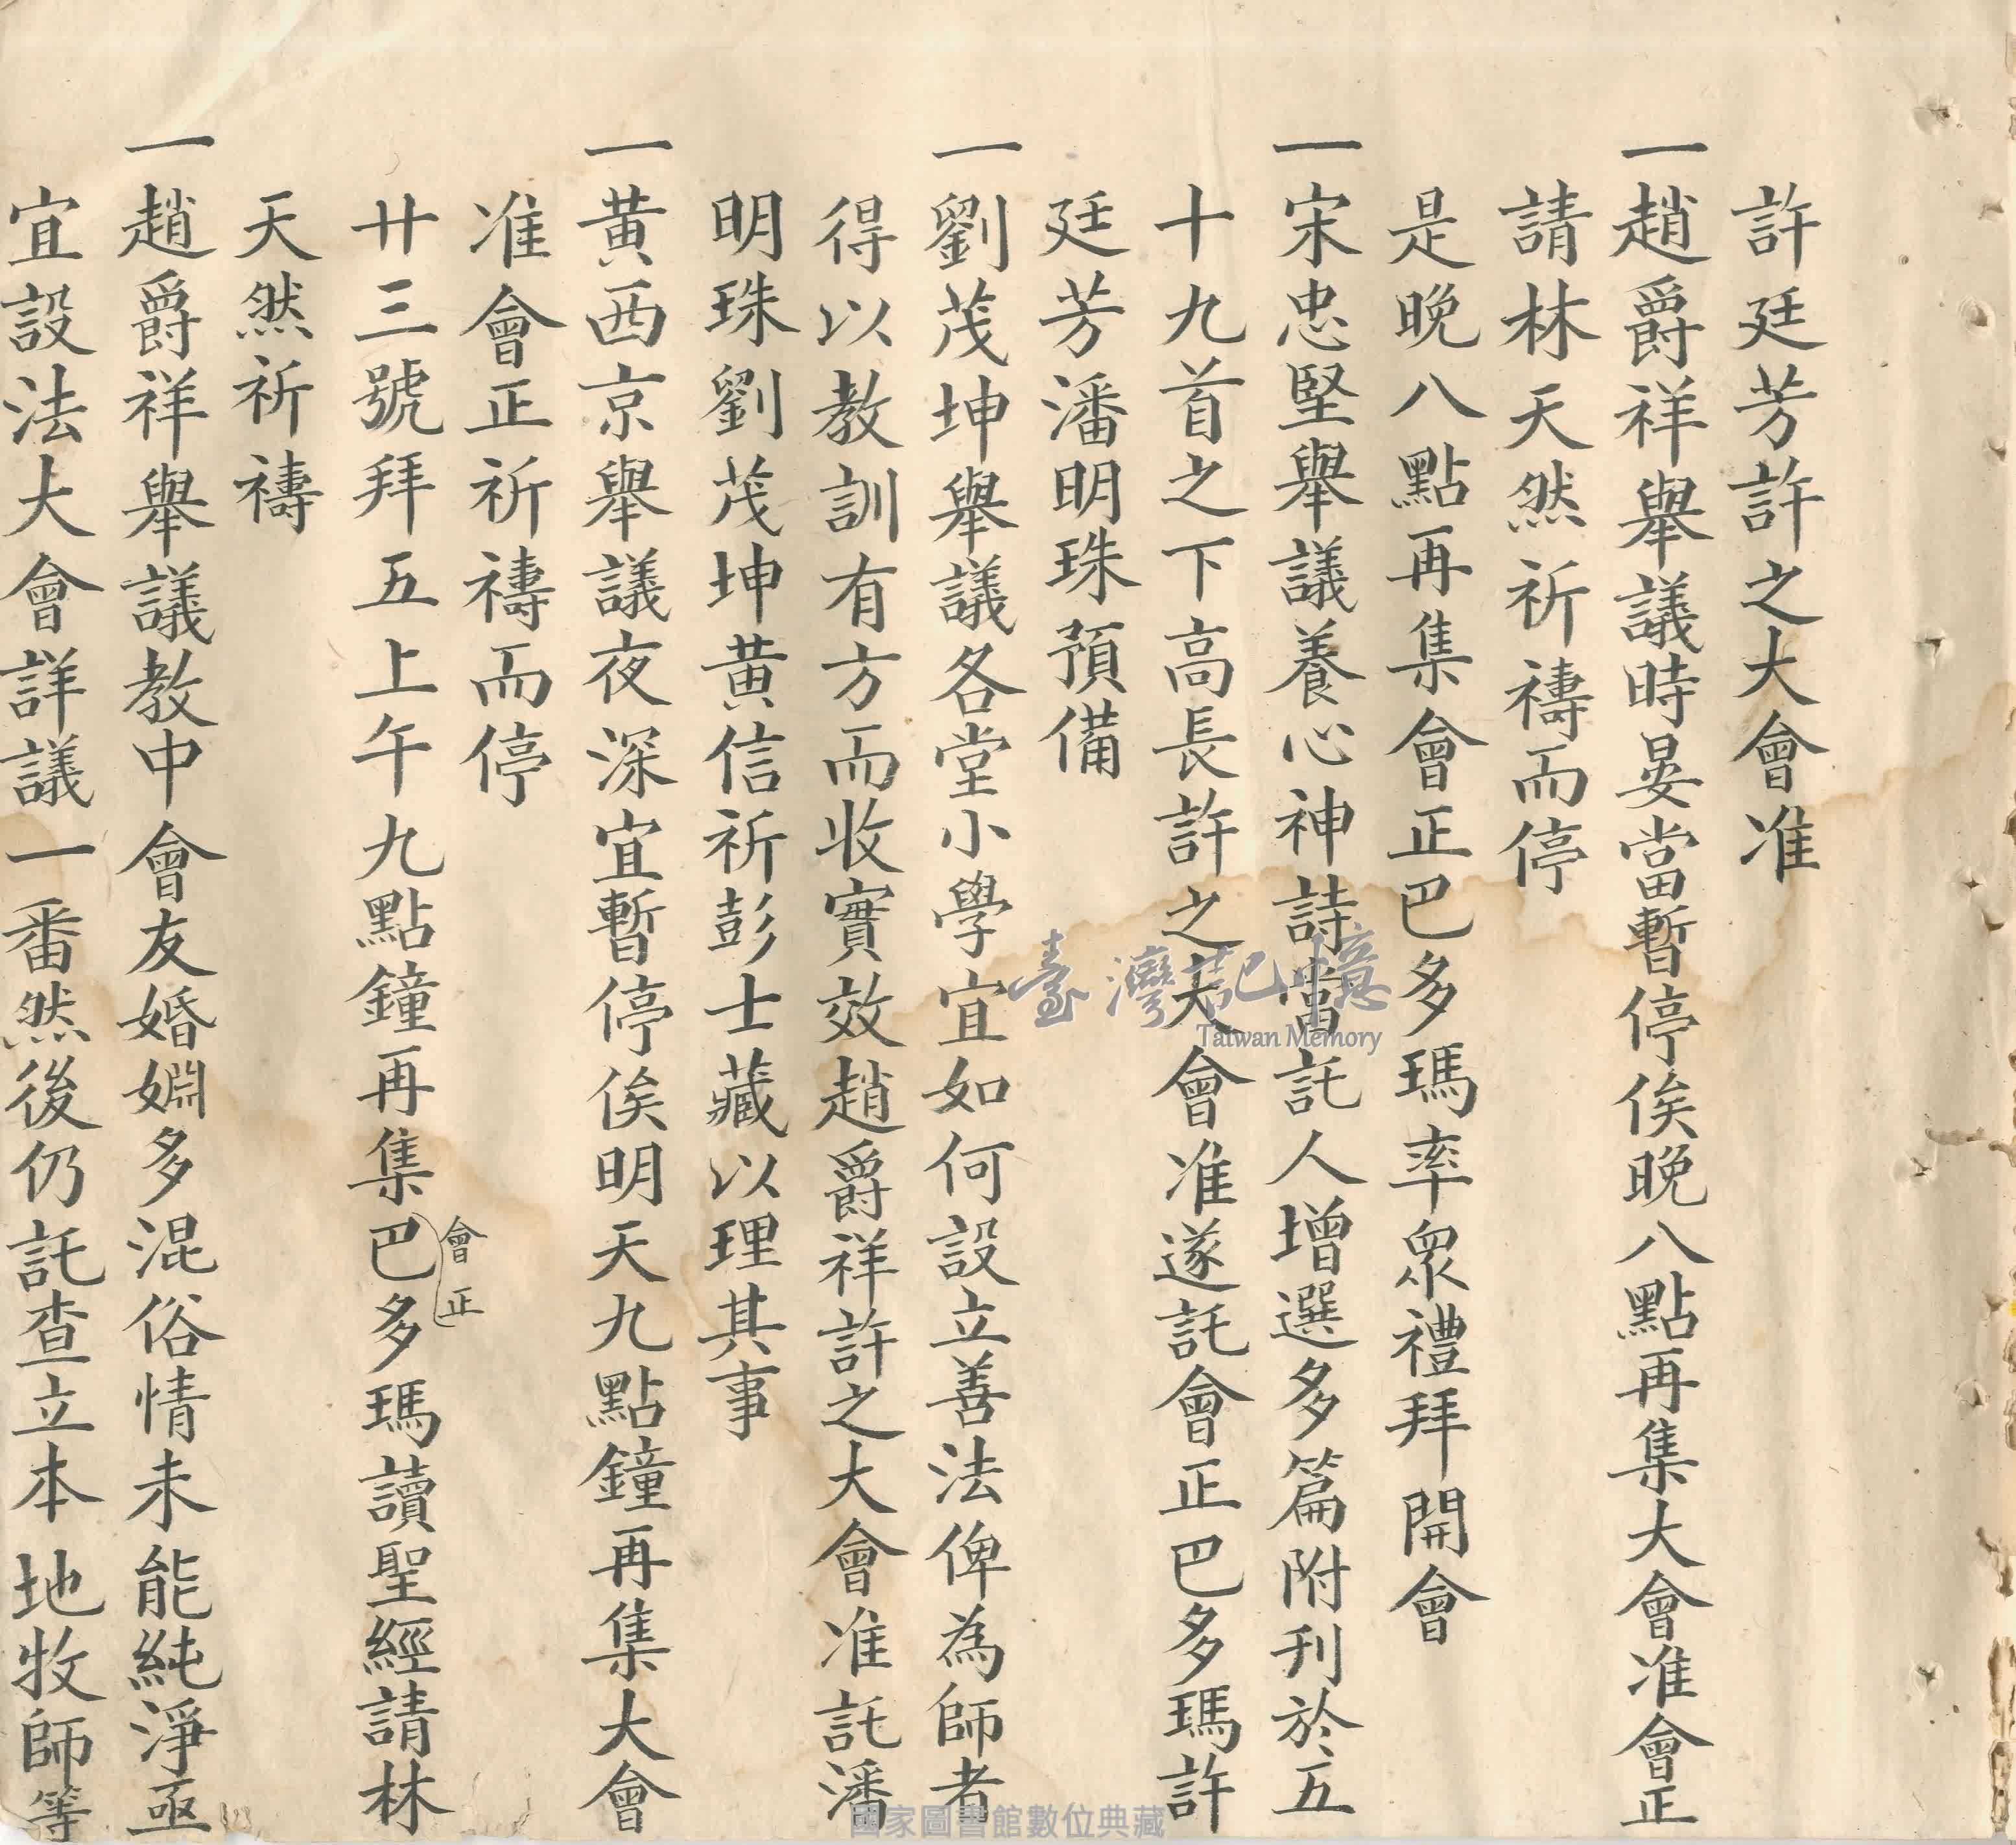 許廷芳許之大會准
一趙爵祥舉議時晏當暫停俟晚八點再集大會准會正
請林天然祈禱而停
是晚八點再集會正巴多瑪率眾禮拜開會
一宋忠堅舉議養心神詩當託人增選多篇附刊於五
十九首之下高長許之大會准遂託會正巴多瑪許
廷芳潘明珠預備
一劉茂坤舉議各堂小學宜如何設立善法俾為師者
得以教訓有方而收實效趙爵祥許之大會准託潘
明珠劉茂坤黃信祈彭士藏以理其事
一黃西京舉議夜深宜暫停俟明天九點鐘再集大會
准會正祈禱而停
廿三號拜五上午九點鐘再集會正巴多瑪讀聖經請林
天然祈禱
一趙爵祥舉議教中會友婚姻多混俗情未能純淨亟
宜設法大會詳議一番然後仍託查立本地牧師等
臺灣記憶
Taiwan Memory
國家圖書館數位典藏